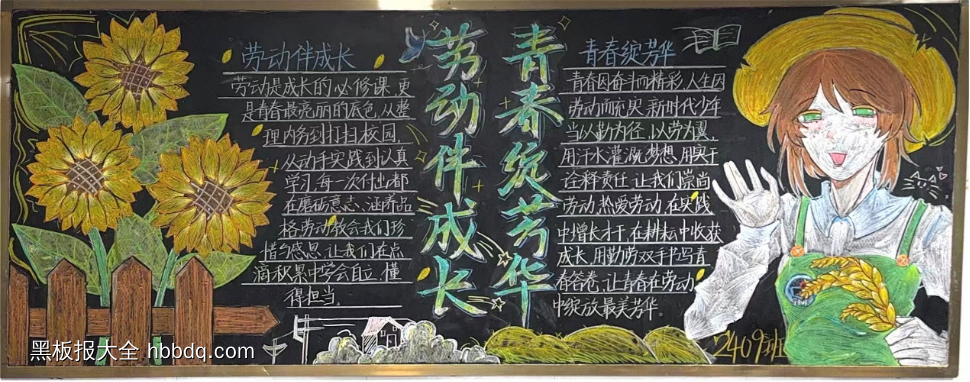 劳动伴成长
劳动是成长的必修课,更
是青春最亮丽的底色,从整
理内务到打扫校园,
从动手实践到认真
学习,每一次付出都
在磨砺意志、涵养品
格。劳动教会我们珍
惜与感恩,让我们在点
滴积累中学会自立、懂
得担当。
劳动伴成长
青春绽芳华
青春绽芳华
青春因奋斗而精彩,人生因
劳动而充实。新时代少年
当以勤为径、以劳为翼,
用汗水灌溉梦想,用实干
诠释责任,让我们崇尚
劳动,热爱劳动,在实践
中增长才干,在耕耘中收获
成长,用勤劳双手书写青
春答卷,让青春在劳动
中绽放最美芳华。
2409班
黑板报大全 hbbdq.com